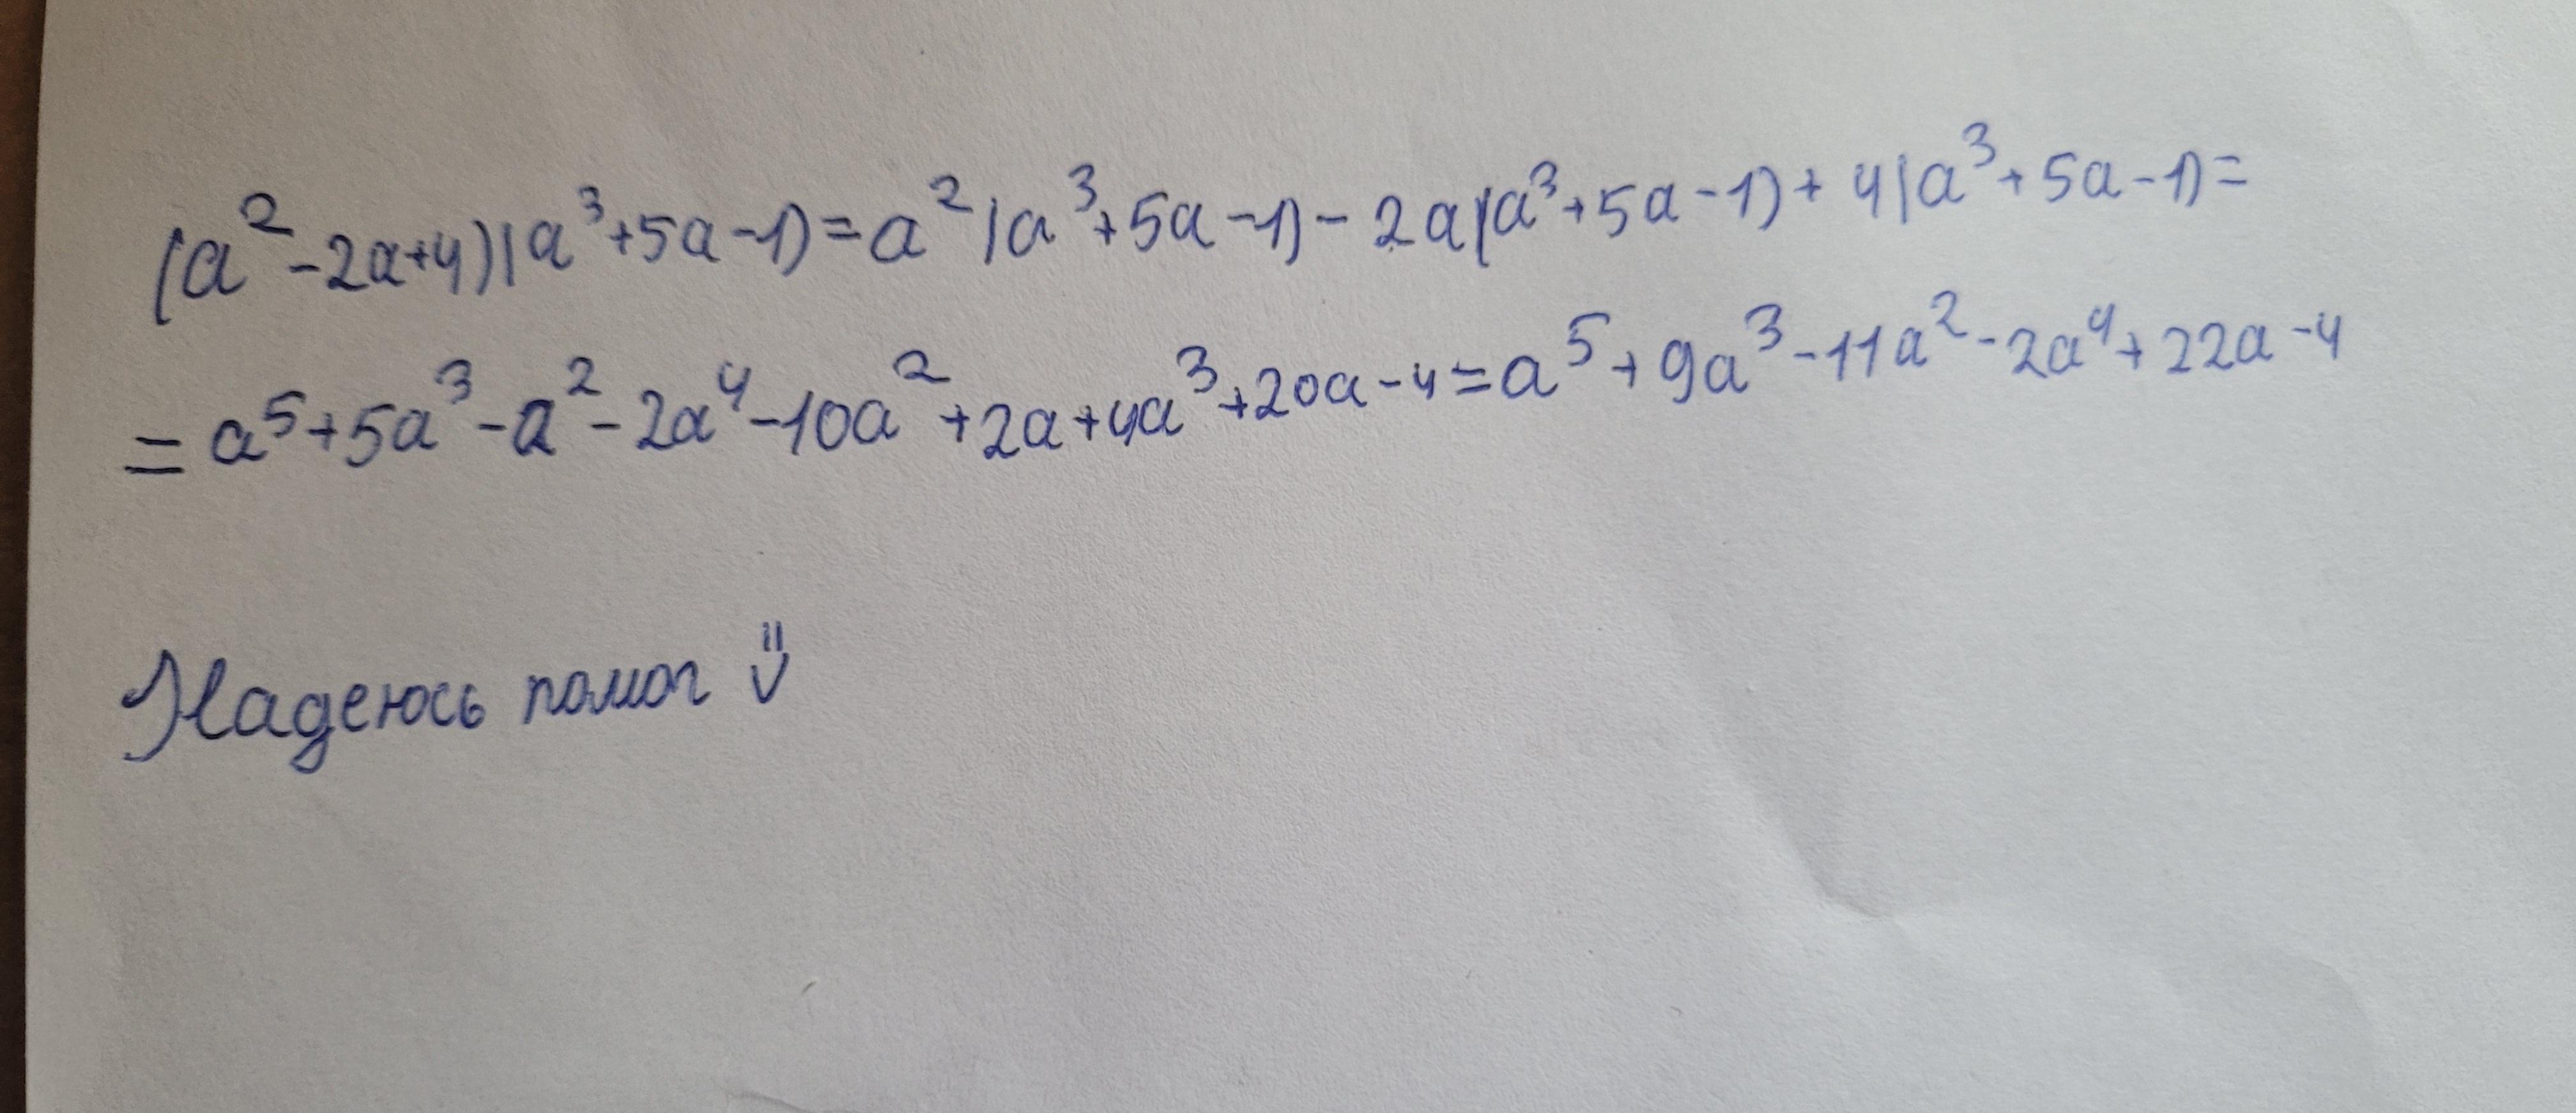 (a²-2a+4)(a³+5a-1)=a²(a³+5a-1)-2a(a³+5a-1)+4(a³+5a-1)=
=a⁵+5a³-a²-2a⁴-10a²+2a+4a³+20a-4=a⁵+9a³-11a²-2a⁴+22a-4
Надеюсь помог